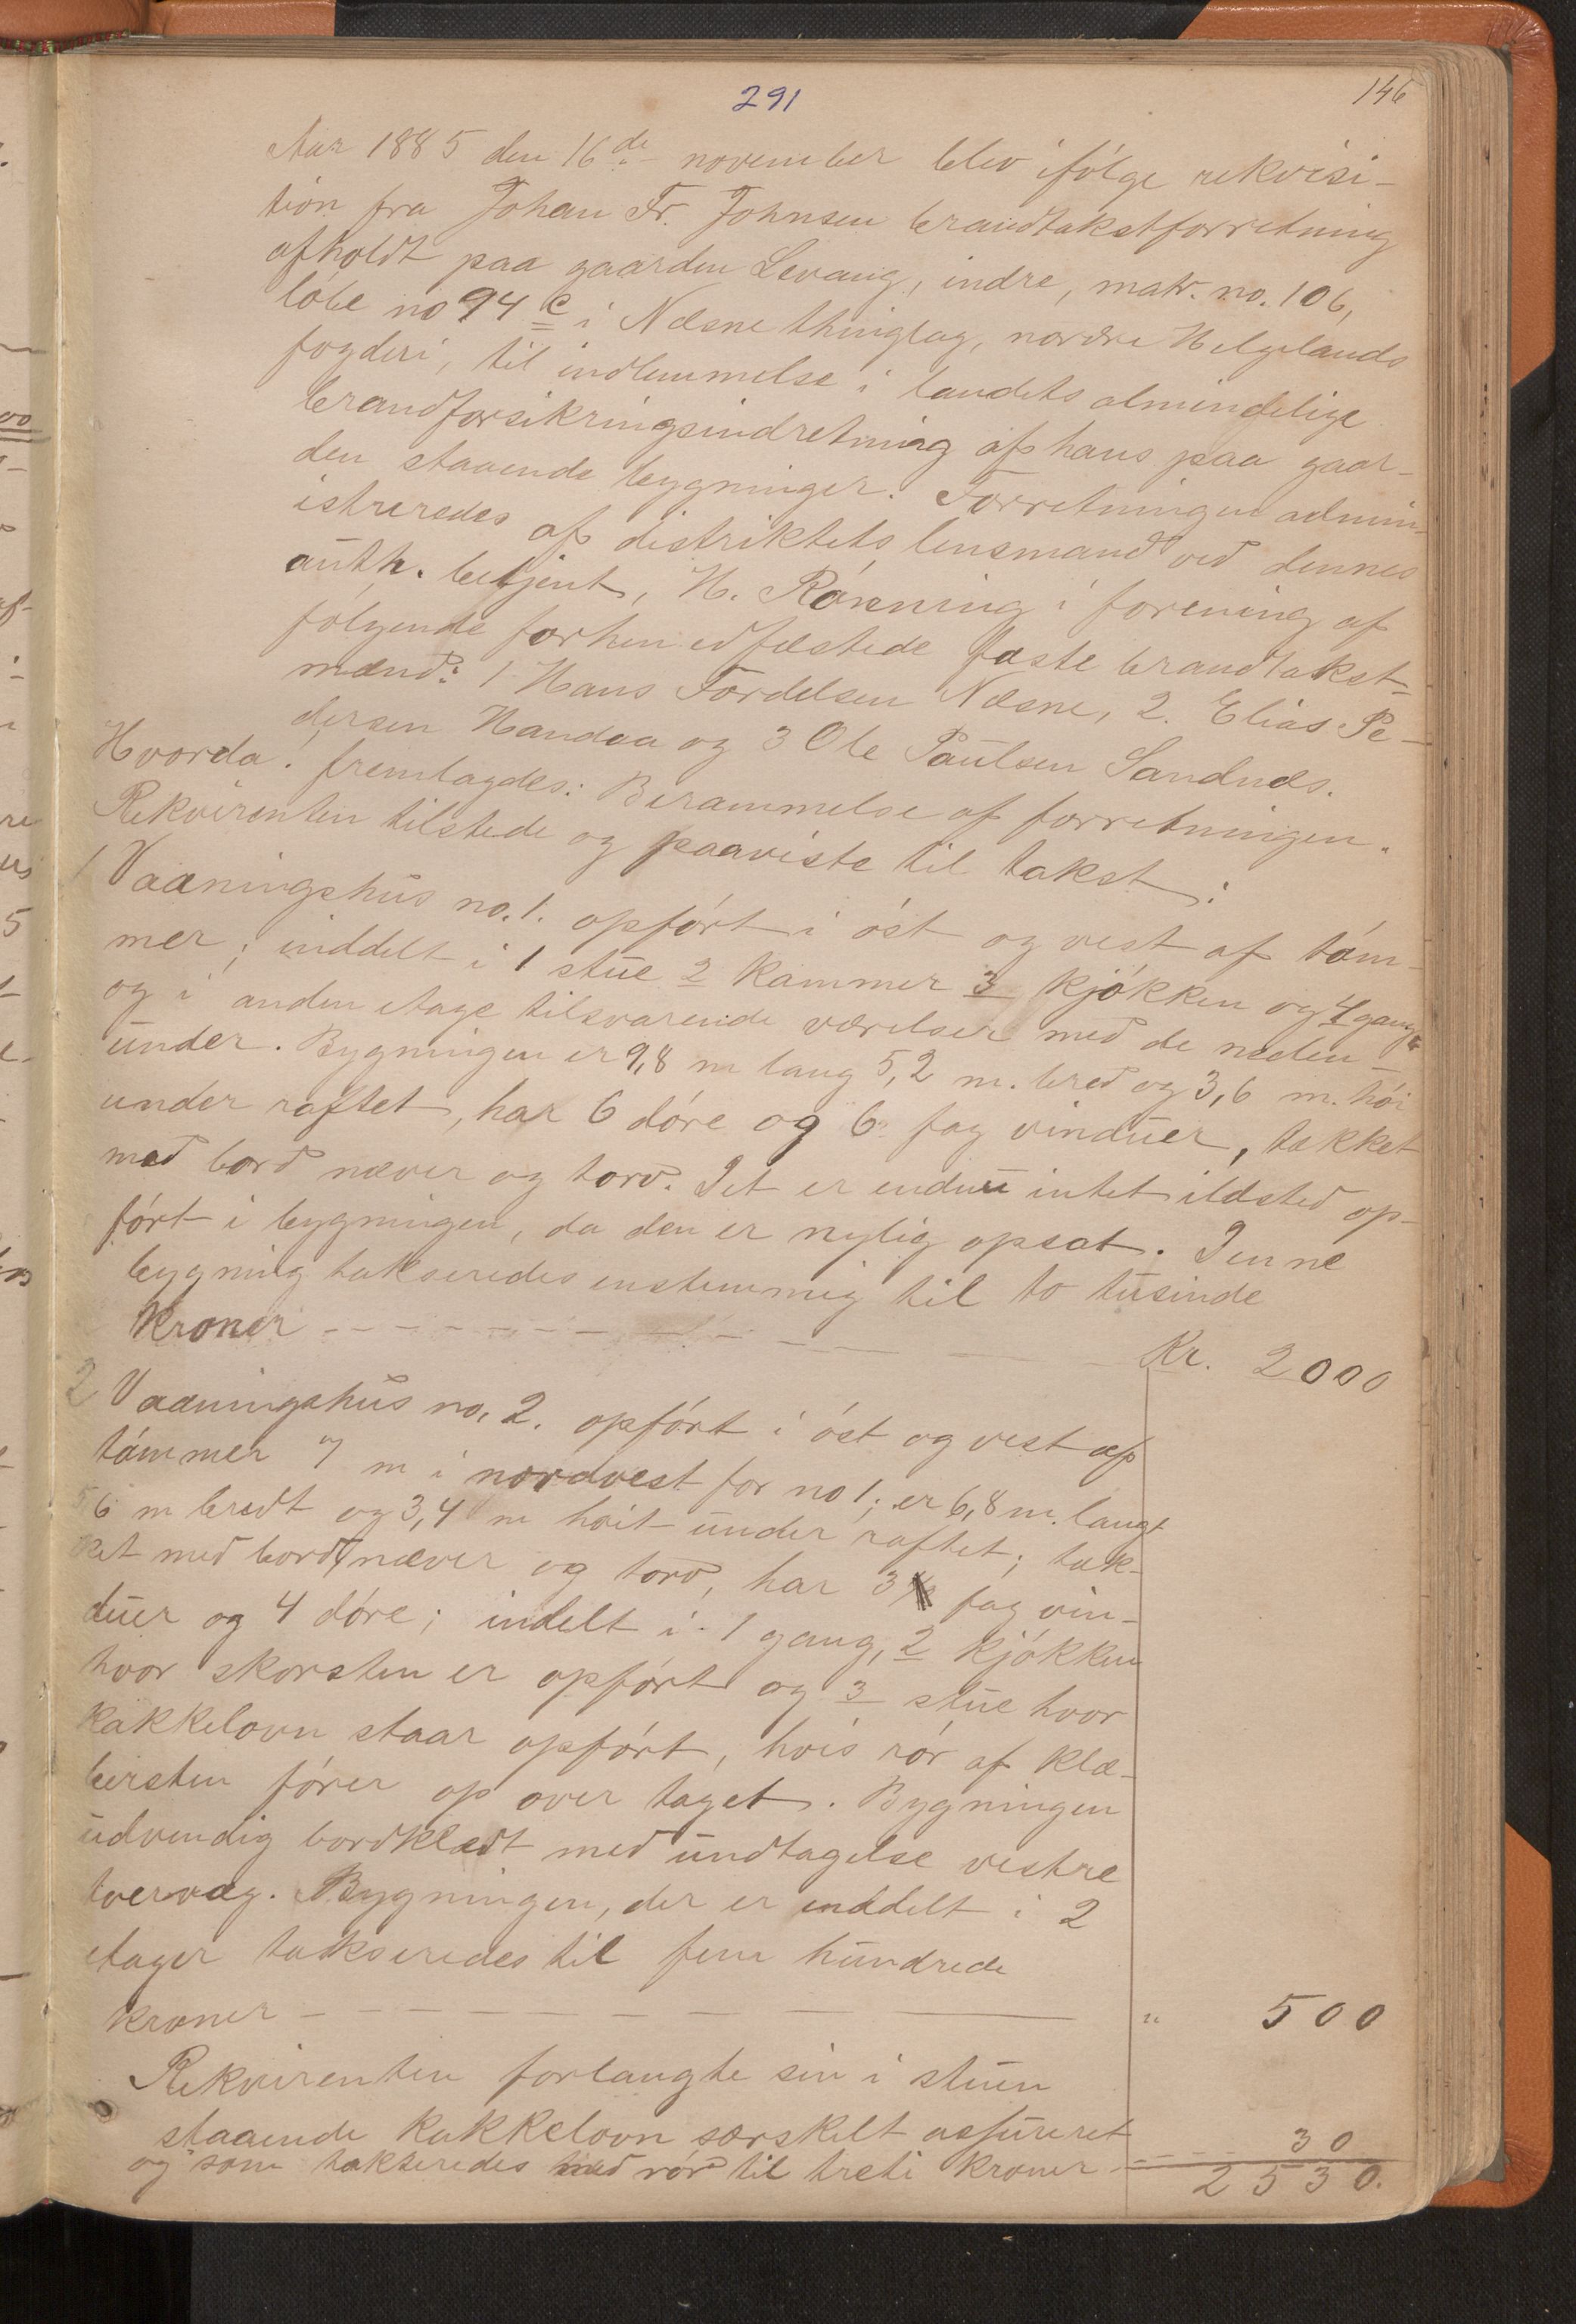 291
146
Aar 1885 den 16de november blev ifólge rekvisi-
tion fra Johan Fr. Johnsen brandtakstforretning
afholdt paa gaarden Levang, indre, matr. no. 106,
lóbe no 94 c i Næsne thinglag, nordre Helgelands
fogderi, til indlemmelse i landets almindelige
brandforsikringsindretning af hans paa gaar-
den staaende bygninger. Forretningen admin-
istreredes af distriktets lensmand ved dennes
auth. betjent, H. Rónning i forening af
fólgende forhen edfæstede faste brandtakst-
mænd: 1 Hans Tordelsen Næsne, 2. Elias Pe-
dersen Handaa og 3 Ole Paulsen Sandnæs.
Hvorda! fremlagdes: Berammelse af forretningen.
Rekvirenten tilstede og paaviste til takst:
1 Vaaningshus no. 1. opfórt i óst og vest af tóm-
mer; inddelt i 1 stue 2 kammer 3 kjókken og 4 gang
og i anden etage tilsvarende værelser med de neden-
under. Bygningen er 9,8 m lang 5,2 m. bred og 3,6 m. hói
under raftet, har 6 dóre og 6 fag vinduer, tækket
med bord næver og torv. Det er endnu intet ildsted op-
fórt i bygningen, da den er nylig opsat. Denne
bygning takseredes enstemmig til to tusinde
kroner - - - - - - - - Kr. 2000
2 Vaaningshus no. 2. opfórt i óst og vest af
tómmer 7 m i nordvest for no 1; er 6,8 m. langt
5,6 m bredt og 3,4 m hóit under raftet; tæk-
ket med bord, næver og torv, har 3 fag vin-
duer og 4 dóre; indelt i 1 gang, 2 kjókken
hvor skorsten er opfórt og 3 stue hvor
kakkelovn staar opfórt, hvis rór af klæ-
bersten fórer op over taget. Bygningen
udvendig bordklædt med undtagelse vestre
tvervæg. Bygningen, der er inddelt i 2
etager takseredes til fem hundrede
kroner - - - - - - - - " 500
Rekvirenten forlangte sin i stuen
staaende kakkelovn særskilt assureret
og som takseredes med rór til treti kroner - - - 30
2530.